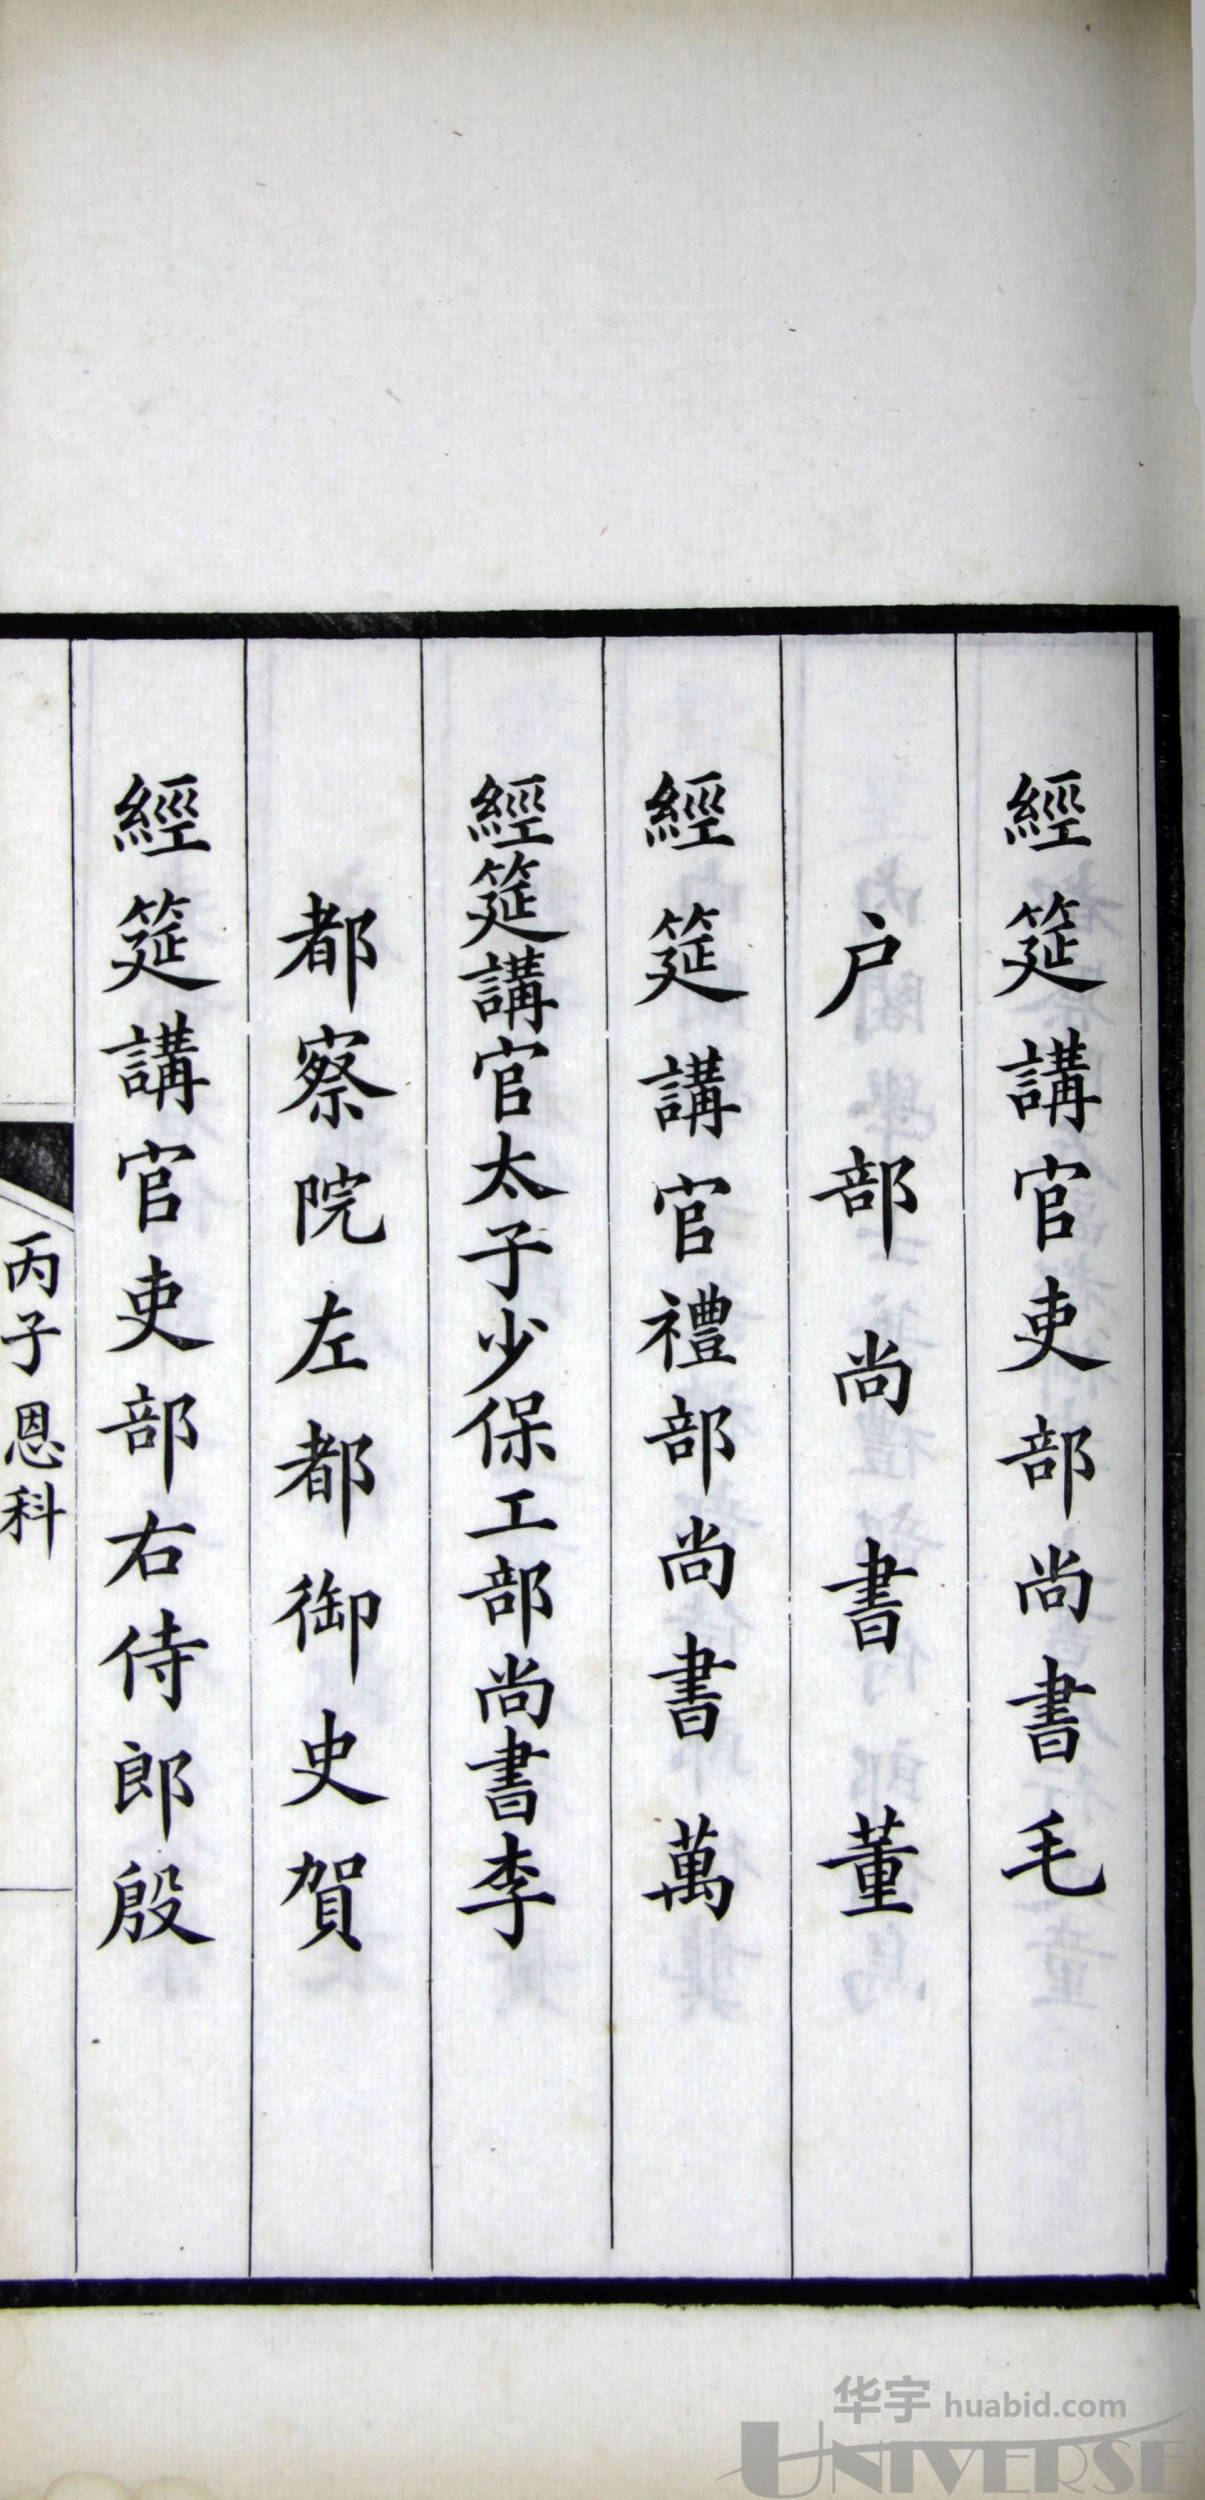 經筵講官吏部尚書毛
户部尚書董
經筵講官禮部尚書萬
經筵講官太子少保工部尚書李
都察院左都御史賀
經筵講官吏部右侍郎殷
丙子恩科
华宇 huabid.com
UNIVERSE